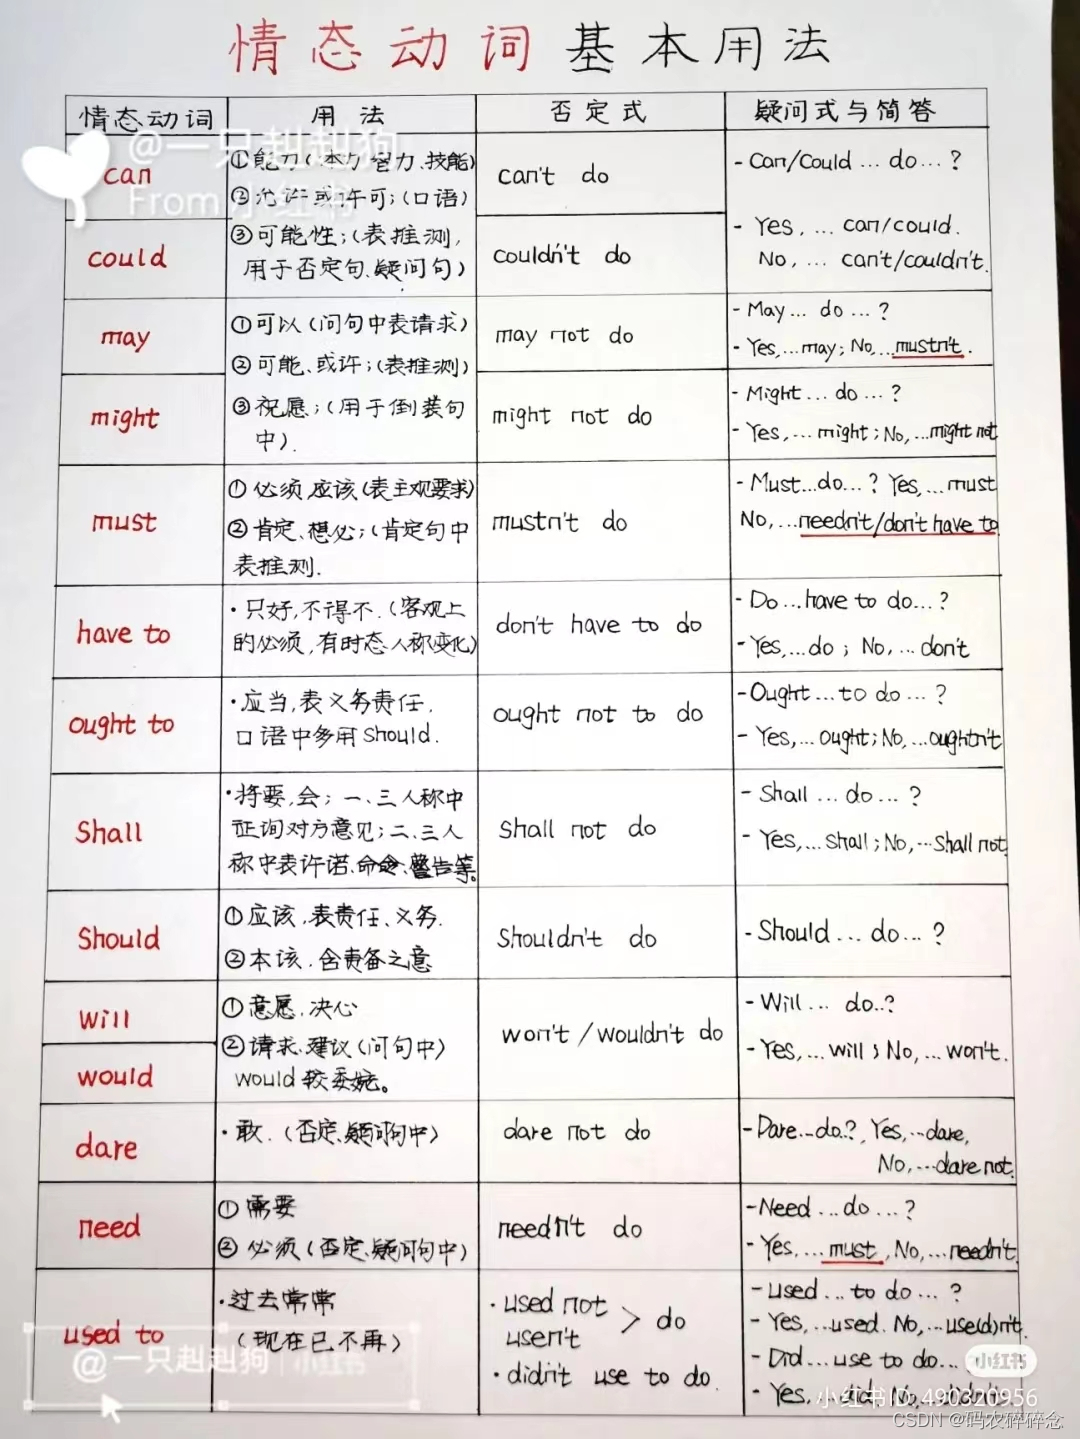 情态动词 基本用法
情态动词 用法 否定式 疑问式与简答
@一只赳赳狗
From小红书
can
①能力(体力.智力.技能)
②允许或许可;(口语)
can't do
- Can/Could ... do ... ?
could
③可能性;(表推测,
用于否定句.疑问句)
couldn't do
- Yes, ... can/could.
No, ... can't/couldn't.
may
①可以(问句中表请求)
②可能、或许;(表推测)
may not do
- May ... do ... ?
- Yes,...may; No,...mustn't.
might
③祝愿;(用于倒装句
中).
might not do
- Might ... do ... ?
- Yes, ... might; No, ...might not
must
①必须,应该(表主观要求)
②肯定、想必;(肯定句中
表推测.
mustn't do
- Must...do...? Yes,...must
No,...needn't/don't have to.
have to
·只好,不得不.(客观上
的必须,有时态人称变化)
don't have to do
- Do ...have to do...?
- Yes,...do ; No, ... don't
ought to
·应当,表义务责任,
口语中多用should.
ought not to do
- Ought ... to do ... ?
- Yes,... ought; No, ...oughtn't
Shall
·将要,会; 一、三人称中
征询对方意见;二、三人
称中表许诺、命令、警告等。
shall not do
- Shall ... do ... ?
- Yes, ... shall; No, ...Shall not.
Should
①应该,表责任、义务.
②本该,含责备之意
Shouldn't do
- Should ... do ... ?
will
①意愿,决心
②请求、建议(问句中)
won't / wouldn't do
- Will ... do..?
- Yes, ... will ; No, ... won't.
would
would较委婉。
dare
·敢.(否定、疑问句中)
dare not do
- Dare...do..?, Yes,...dare,
No,...dare not.
need
①需要
②必须(否定、疑问句中)
needn't do
- Need ... do ... ?
- Yes, ... must , No, ...needn't.
used to
·过去常常
(现在已不再)
·used not
usen't > do
·didn't use to do.
- used ... to do ... ?
- Yes, ...used. No, ...use(d)n't.
- Did ... use to do...
- Yes, ... did, No, ...didn't.
@一只赳赳狗 小红书
小红书
小红书ID: 490320956
CSDN @码农碎碎念